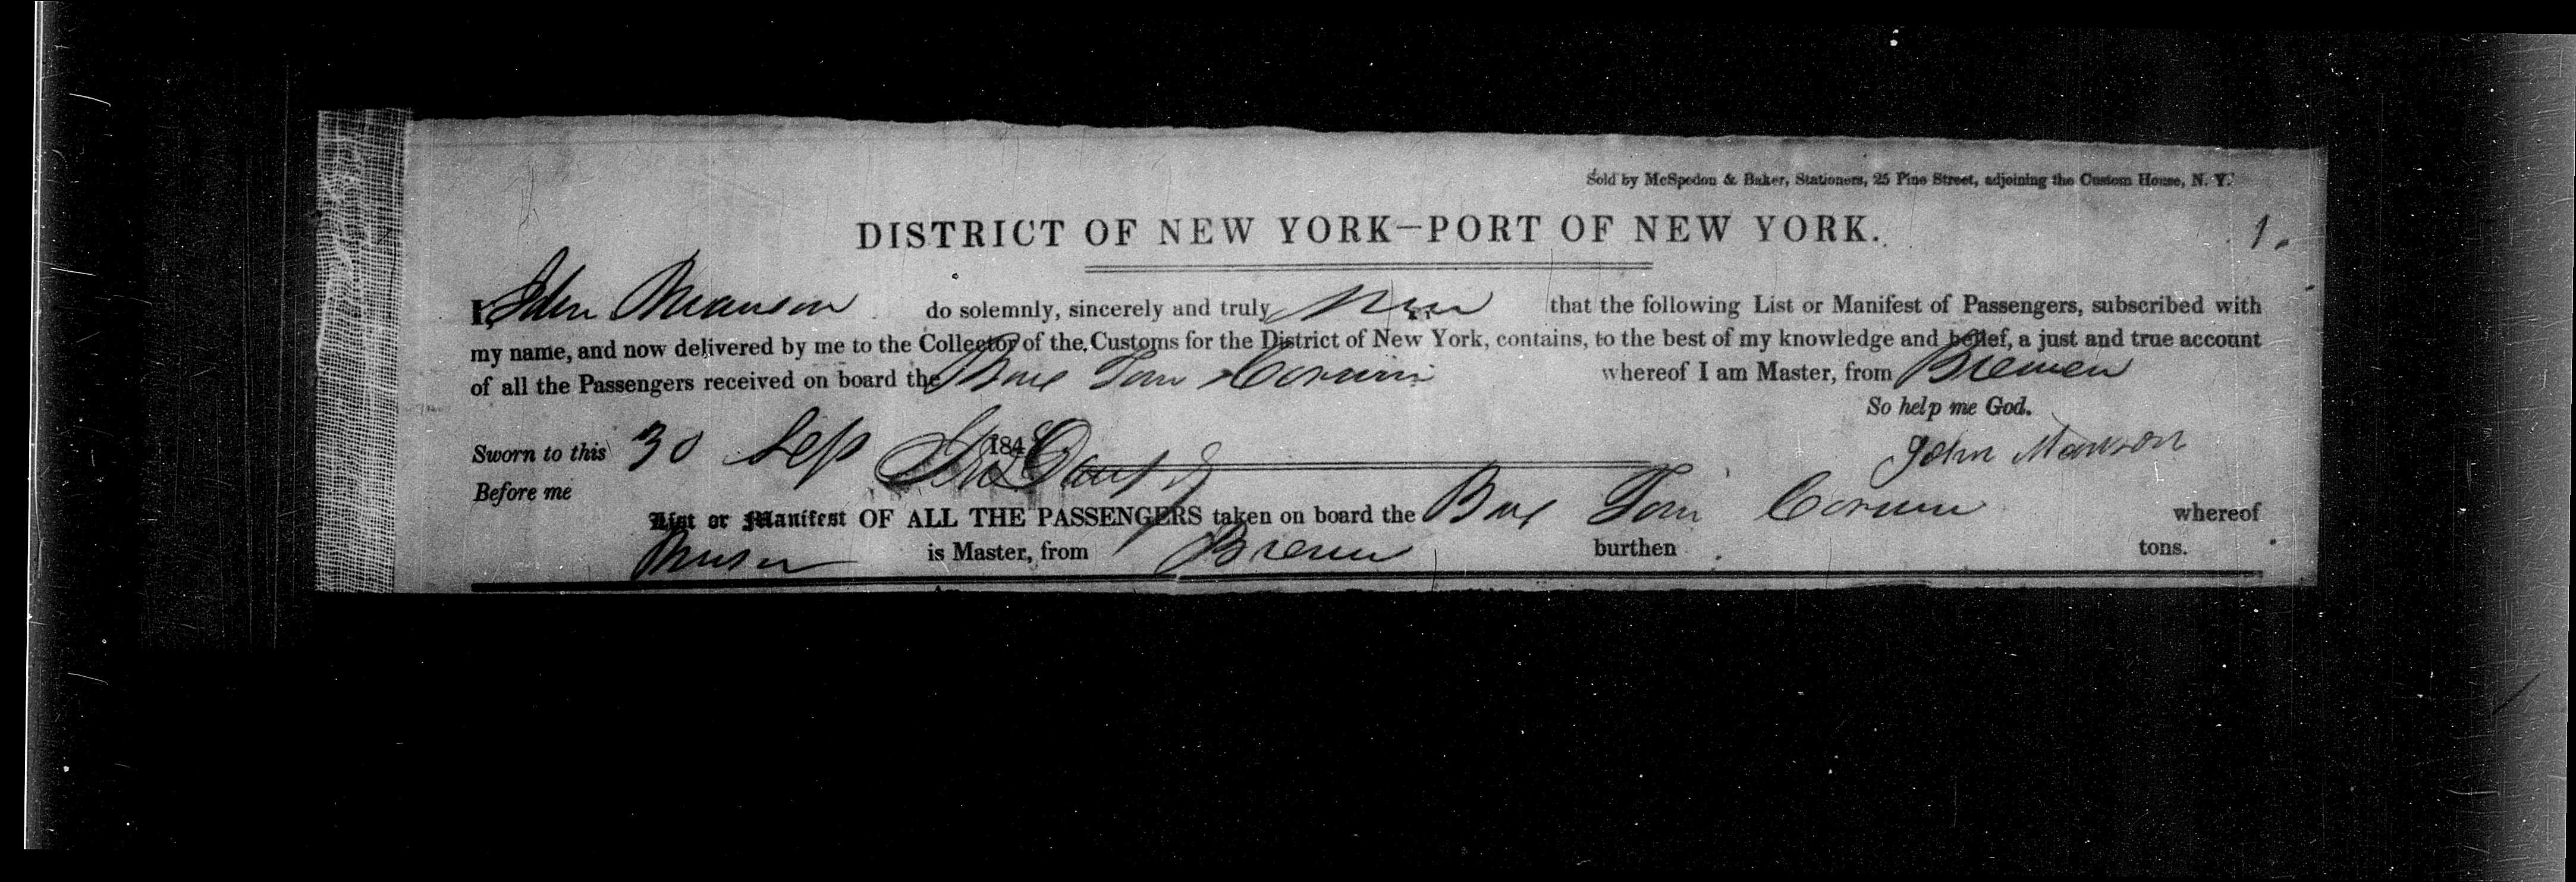 Sold by McSpedon & Baker, Stationers, 25 Pine Street, adjoining the Custom House, N. Y.
DISTRICT OF NEW YORK—PORT OF NEW YORK.
1.
I, John Manson do solemnly, sincerely and truly swear that the following List or Manifest of Passengers, subscribed with
my name, and now delivered by me to the Collector of the Customs for the District of New York, contains, to the best of my knowledge and belief, a just and true account
of all the Passengers received on board the Barq Tom Corwin whereof I am Master, from Bremen
So help me God.
Sworn to this 30 Sep 184
John Manson
Before me
List or Manifest OF ALL THE PASSENGERS taken on board the Barq Tom Corwin whereof
Manson is Master, from Bremen burthen tons.